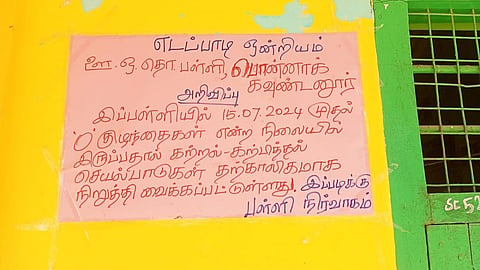 எடப்பாடி ஒன்றியம்
ஊ.ஒ.தொ பள்ளி, பொன்னாக்
கவுண்டனூர்
அறிவிப்பு
இப்பள்ளியில் 15.07.2024 முதல்
0 குழந்தைகள் என்ற நிலையில்
இருப்பதால் கற்றல்-கற்பித்தல்
செயல்பாடுகள் தற்காலிகமாக
நிறுத்தி வைக்கப்பட்டுள்ளது. இப்படிக்கு
பள்ளி நிர்வாகம்